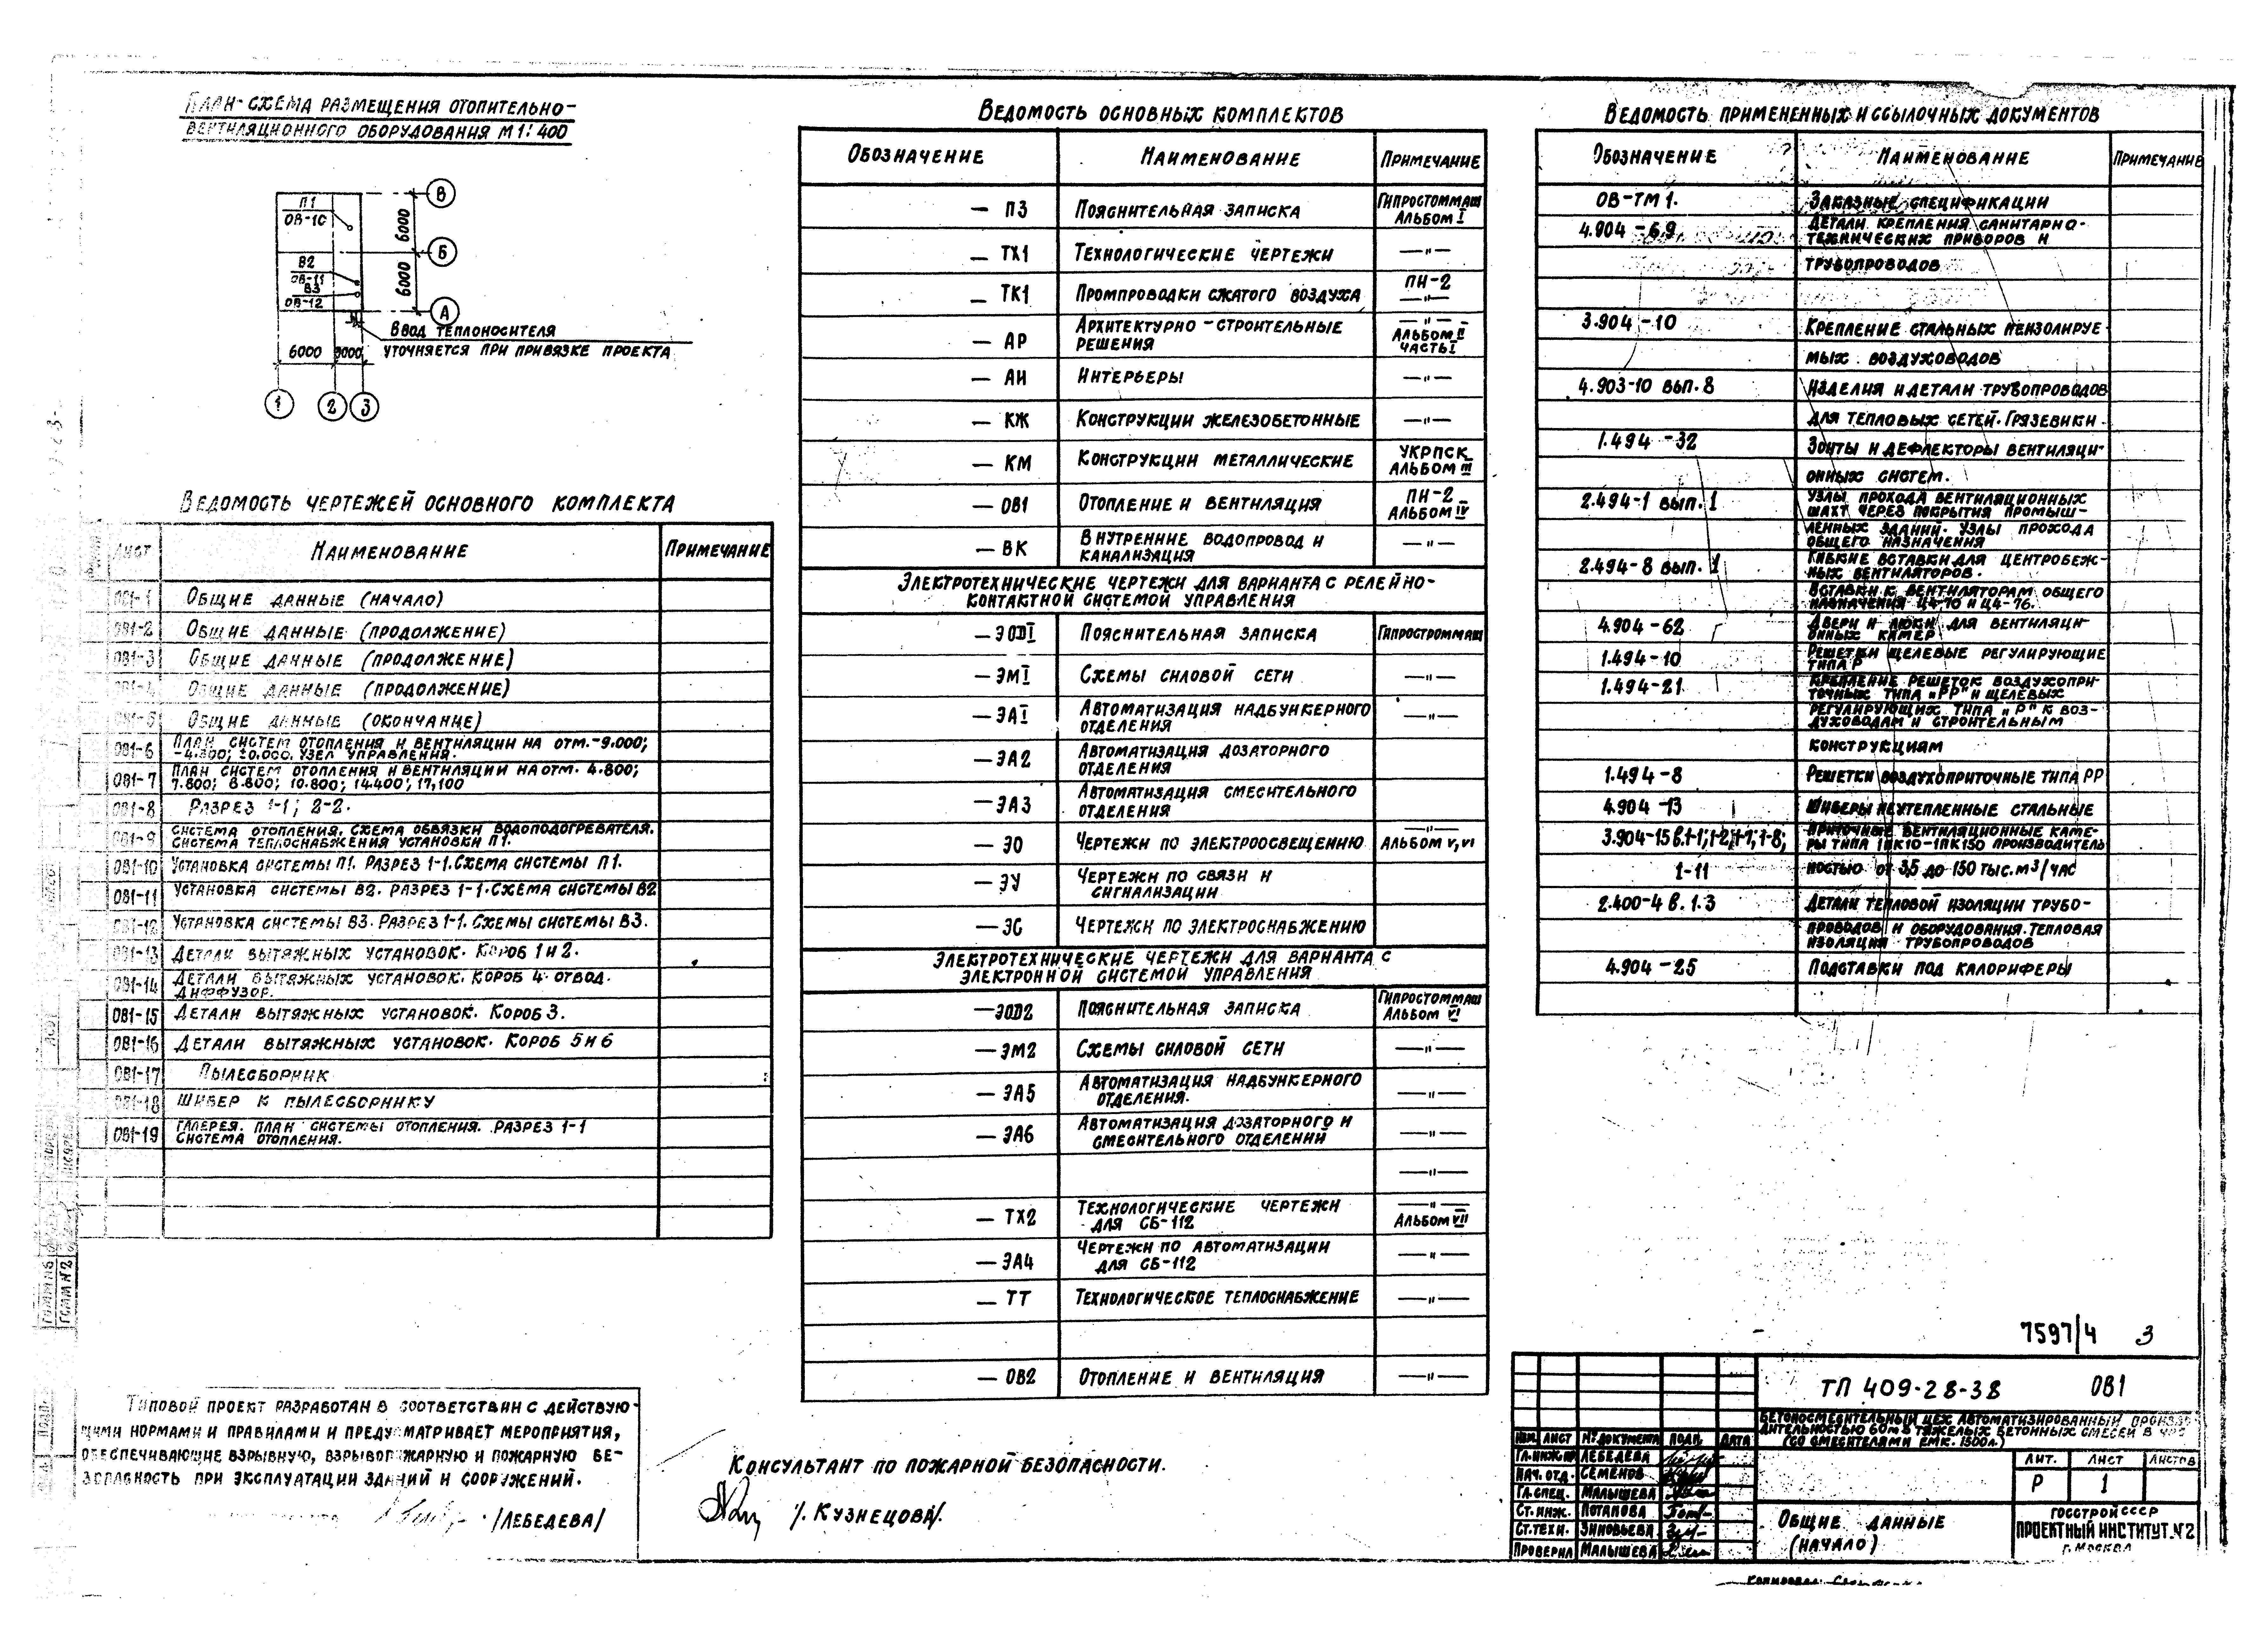 План-схема размещения отопительно-
вентиляционного оборудования М 1:400
П1
ОВ-10
В2
ОВ-11
В3
ОВ-12
В
Б
А
6000
6000
Ввод теплоносителя
уточняется при привязке проекта
6000
3000
1
2
3
Ведомость чертежей основного комплекта
Лист Наименование Примечание
ОВ1-1 Общие данные (начало)
ОВ1-2 Общие данные (продолжение)
ОВ1-3 Общие данные (продолжение)
ОВ1-4 Общие данные (продолжение)
ОВ1-5 Общие данные (окончание)
ОВ1-6 План систем отопления и вентиляции на отм. -9.000;
-4.800; ±0.000. Узел управления.
ОВ1-7 План систем отопления и вентиляции на отм. 4.800;
7.800; 8.800; 10.800; 14.400; 17,100
ОВ1-8 Разрез 1-1; 2-2.
ОВ1-9 Система отопления. Схема обвязки водоподогревателя.
Система теплоснабжения установки П1.
ОВ1-10 Установка системы П1. Разрез 1-1. Схема системы П1.
ОВ1-11 Установка системы В2. Разрез 1-1. Схема системы В2
ОВ1-12 Установка системы В3. Разрез 1-1. Схемы системы В3.
ОВ1-13 Детали вытяжных установок. Короб 1 и 2.
ОВ1-14 Детали вытяжных установок. Короб 4. отвод.
Диффузор.
ОВ1-15 Детали вытяжных установок. Короб 3.
ОВ1-16 Детали вытяжных установок. Короб 5 и 6
ОВ1-17 Пылесборник
ОВ1-18 Шибер к пылесборнику
ОВ1-19 Галерея. План системы отопления. Разрез 1-1
Система отопления.
Типовой проект разработан в соответствии с действую-
щими нормами и правилами и предусматривает мероприятия,
обеспечивающие взрывную, взрывопожарную и пожарную бе-
зопасность при эксплуатации зданий и сооружений.
/Лебедева/
Ведомость основных комплектов
Обозначение Наименование Примечание
— ПЗ Пояснительная записка Гипростоммаш
Альбом I
— ТХ1 Технологические чертежи —"—
— ТК1 Промпроводки сжатого воздуха ПИ-2
—"—
— АР Архитектурно-строительные
решения —"—
Альбом II
часть I
— АИ Интерьеры —"—
— КЖ Конструкции железобетонные —"—
— КМ Конструкции металлические УКРПСК
Альбом III
— ОВ1 Отопление и вентиляция ПИ-2
Альбом IV
— ВК Внутренние водопровод и
канализация —"—
Электротехнические чертежи для варианта с релейно-
контактной системой управления
— ЭОДI Пояснительная записка Гипростроммаш
— ЭМI Схемы силовой сети —"—
— ЭАI Автоматизация надбункерного
отделения —"—
— ЭА2 Автоматизация дозаторного
отделения
— ЭА3 Автоматизация смесительного
отделения
— ЭО Чертежи по электроосвещению —"—
Альбом V, VI
— ЭУ Чертежи по связи и
сигнализации
— ЭС Чертежи по электроснабжению
Электротехнические чертежи для варианта с
электронной системой управления
— ЭОД2 Пояснительная записка Гипростоммаш
Альбом VI
— ЭМ2 Схемы силовой сети —"—
— ЭА5 Автоматизация надбункерного
отделения. —"—
— ЭА6 Автоматизация дозаторного и
смесительного отделений —"—
—"—
— ТХ2 Технологические чертежи
для СБ-112 —"—
Альбом VII
— ЭА4 Чертежи по автоматизации
для СБ-112 —"—
— ТТ Технологическое теплоснабжение —"—
— ОВ2 Отопление и вентиляция —"—
Консультант по пожарной безопасности.
/. Кузнецова/.
Ведомость примененных и ссылочных документов
Обозначение Наименование Примечание
ОВ-ТМ 1. Заказные спецификации
4.904-69 Детали крепления санитарно-
технических приборов и
трубопроводов
3.904-10 Крепление стальных неизолируе
мых воздуховодов
4.903-10 вып. 8 Изделия и детали трубопроводов
для тепловых сетей. Грязевики.
1.494-32 Зонты и дефлекторы вентиляци-
онных систем.
2.494-1 вып. 1 Узлы прохода вентиляционных
шахт через покрытия промыш-
ленных зданий. Узлы прохода
общего назначения
2.494-8 вып. 1 Гибкие вставки для центробеж-
ных вентиляторов.
Вставки к вентиляторам общего
назначения Ц4-70 и Ц4-76.
4.904-62 Двери и люки для вентиляци-
онных камер
1.494-10 Решетки щелевые регулирующие
типа Р
1.494-21 Крепление решеток воздухопри-
точных типа „РР" и щелевых
регулирующих типа „Р" к воз-
духоводам и строительным
конструкциям
1.494-8 Решетки воздухоприточные типа РР
4.904-13 Шиберы неутепленные стальные
3.904-15 в. 1-1; 1-2; 1-7; 1-8; Приточные вентиляционные каме-
ры типа 1ПК10-1ПК150 производитель
1-11 ностью от 3,5 до 150 тыс. м³/час
2.400-4 в. 1.3 Детали тепловой изоляции трубо-
проводов и оборудования. Тепловая
изоляция трубопроводов
4.904-25 Подставки под калориферы
7597/4 3
ТП 409-28-38 ОВ1
Бетоносмесительный цех автоматизированный произво
дительностью 60 м³ тяжелых бетонных смесей в час
(со смесителями емк. 1500л.)
Изм. Лист № документа Подп. Дата
Гл. инж. пр Лебедева
Нач. отд. Семенов
Гл. спец. Малышева
Ст. инж. Потапова
Ст. техн. Зиновьева
Проверил Малышева
Лит. Лист Листов
Р 1
Общие данные
(начало)
Госстрой СССР
Проектный институт №2
г. Москва